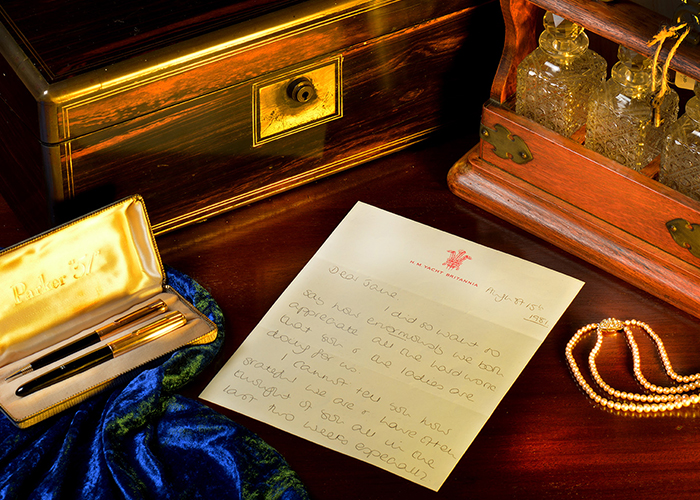 Parker 51
H.M. YACHT BRITANNIA
August 15th
1981
Dear Jane,
I did so want to
say how enormously we both
appreciate all the hard work
that you & the ladies are
doing for us.
I cannot tell you how
grateful we are & have often
thought of you all in the
last two weeks especially!